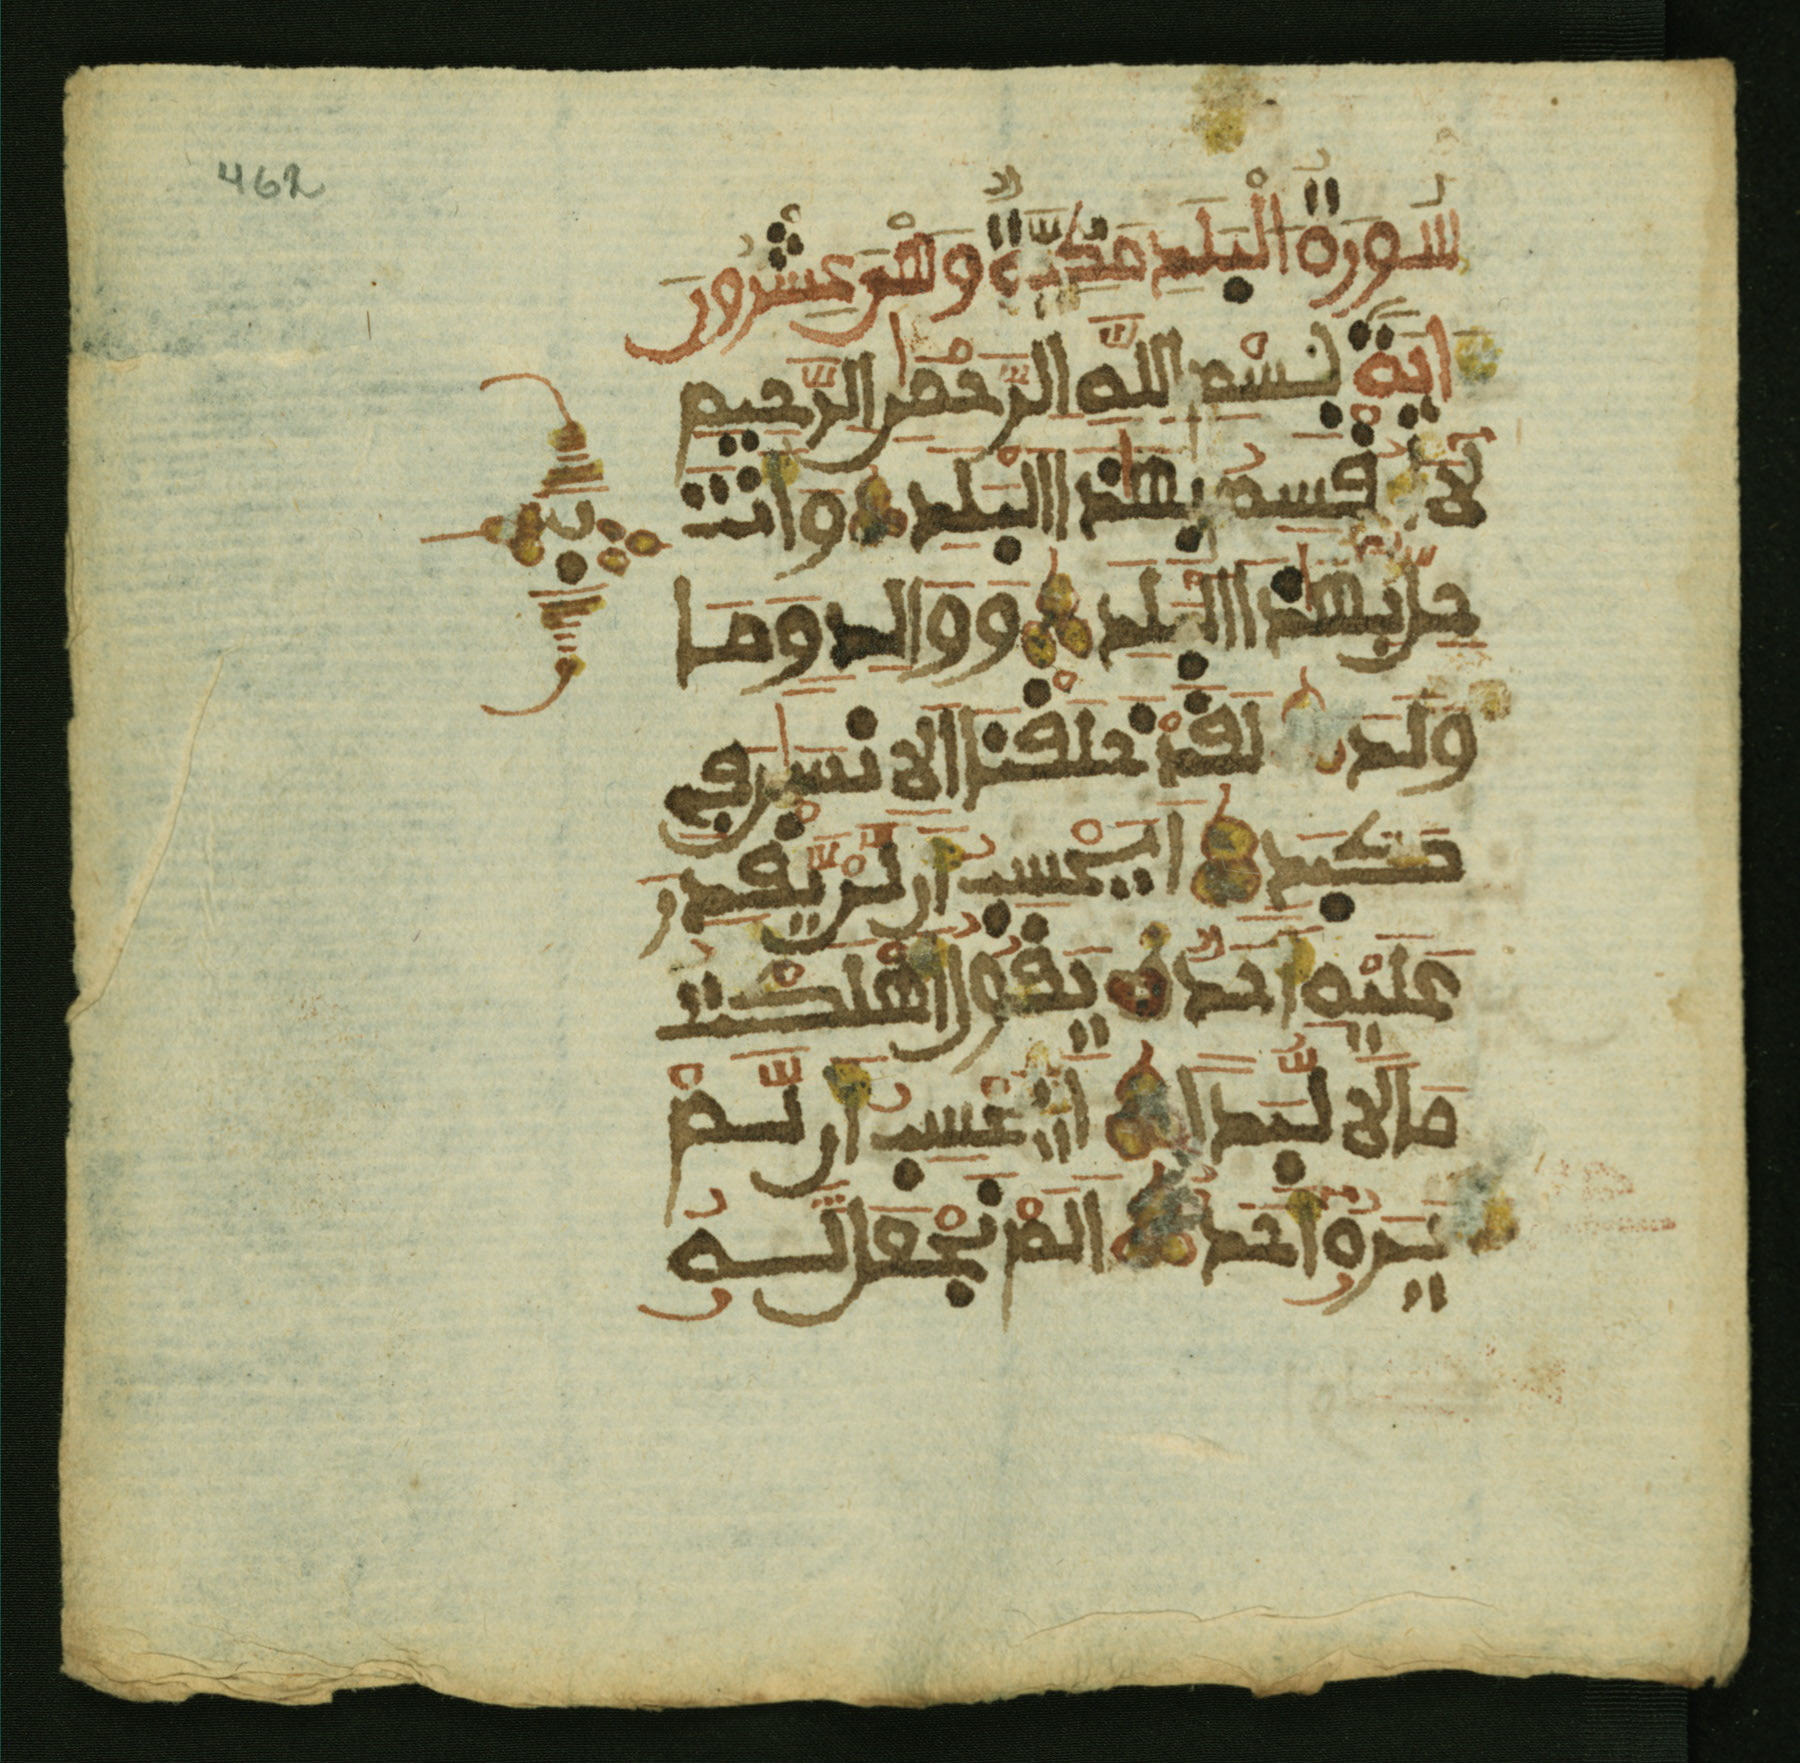 462
سُورَةُ الْبَلَدِ مَكِّيَّةٌ وَهْىَ عِشْرُونَ
ايَةً بِسْمِ اللَّهِ الرَّحْمَٰنِ الرَّحِيمِ
لَآ أُقْسِمُ بِهَٰذَا الْبَلَدِ وَأَنتَ
حِلٌّ بِهَٰذَا الْبَلَدِ وَوَالِدٍ وَمَا
وَلَدَ لَقَدْ خَلَقْنَا الِانسَٰنَ فِي
كَبَدٍ أَيَحْسِبُ أَن لَّنْ يَّقْدِرَ
عَلَيْهِ أَحَدٌ يَقُولُ أَهْلَكْتُ
مَالًا لُّبَدًا أَيَحْسِبُ أَن لَّمْ
يَرَهُ أَحَدٌ أَلَمْ نَجْعَل لَّهُ